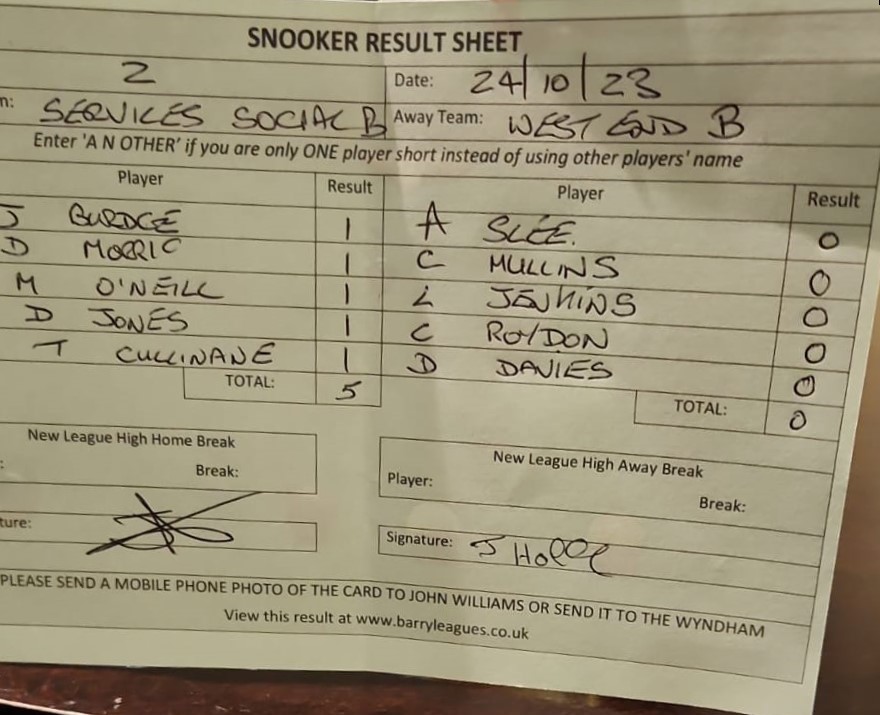 SNOOKER RESULT SHEET
2 Date: 24/10/23
n: SERVICES SOCIAL B Away Team: WEST END B
Enter 'A N OTHER' if you are only ONE player short instead of using other players' name
Player Result Player Result
J BURDGE 1 A SLEE. 0
D MORRIC 1 C MULLINS 0
M O'NEILL 1 L JENKINS 0
D JONES 1 C ROYDON 0
T CULLINANE 1 D DAVIES 0
TOTAL: 5 TOTAL: 0
New League High Home Break New League High Away Break
: Break: Player: Break:
ture: Signature: J Holll
PLEASE SEND A MOBILE PHONE PHOTO OF THE CARD TO JOHN WILLIAMS OR SEND IT TO THE WYNDHAM
View this result at www.barryleagues.co.uk